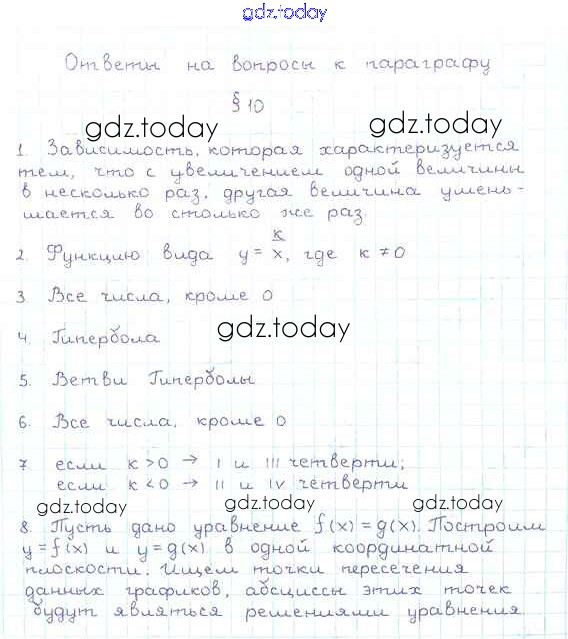 gdz.today
Ответы на вопросы к параграфу
§ 10
gdz.today gdz.today
1. Зависимость, которая характеризуется
тем, что с увеличением одной величины
в несколько раз, другая величина умень-
шается во столько же раз.
2. Функцию вида y = k/x, где k ≠ 0
3. Все числа, кроме 0
4. Гипербола
gdz.today
5. Ветви Гиперболы
6. Все числа, кроме 0
7. если k > 0 → I и III четверти;
если k < 0 → II и IV четверти
gdz.today gdz.today gdz.today
8. Пусть дано уравнение f(x) = g(x). Построим
y = f(x) и y = g(x) в одной координатной
плоскости. Ищем точки пересечения
данных графиков, абсциссы этих точек
будут являться решениями уравнения.